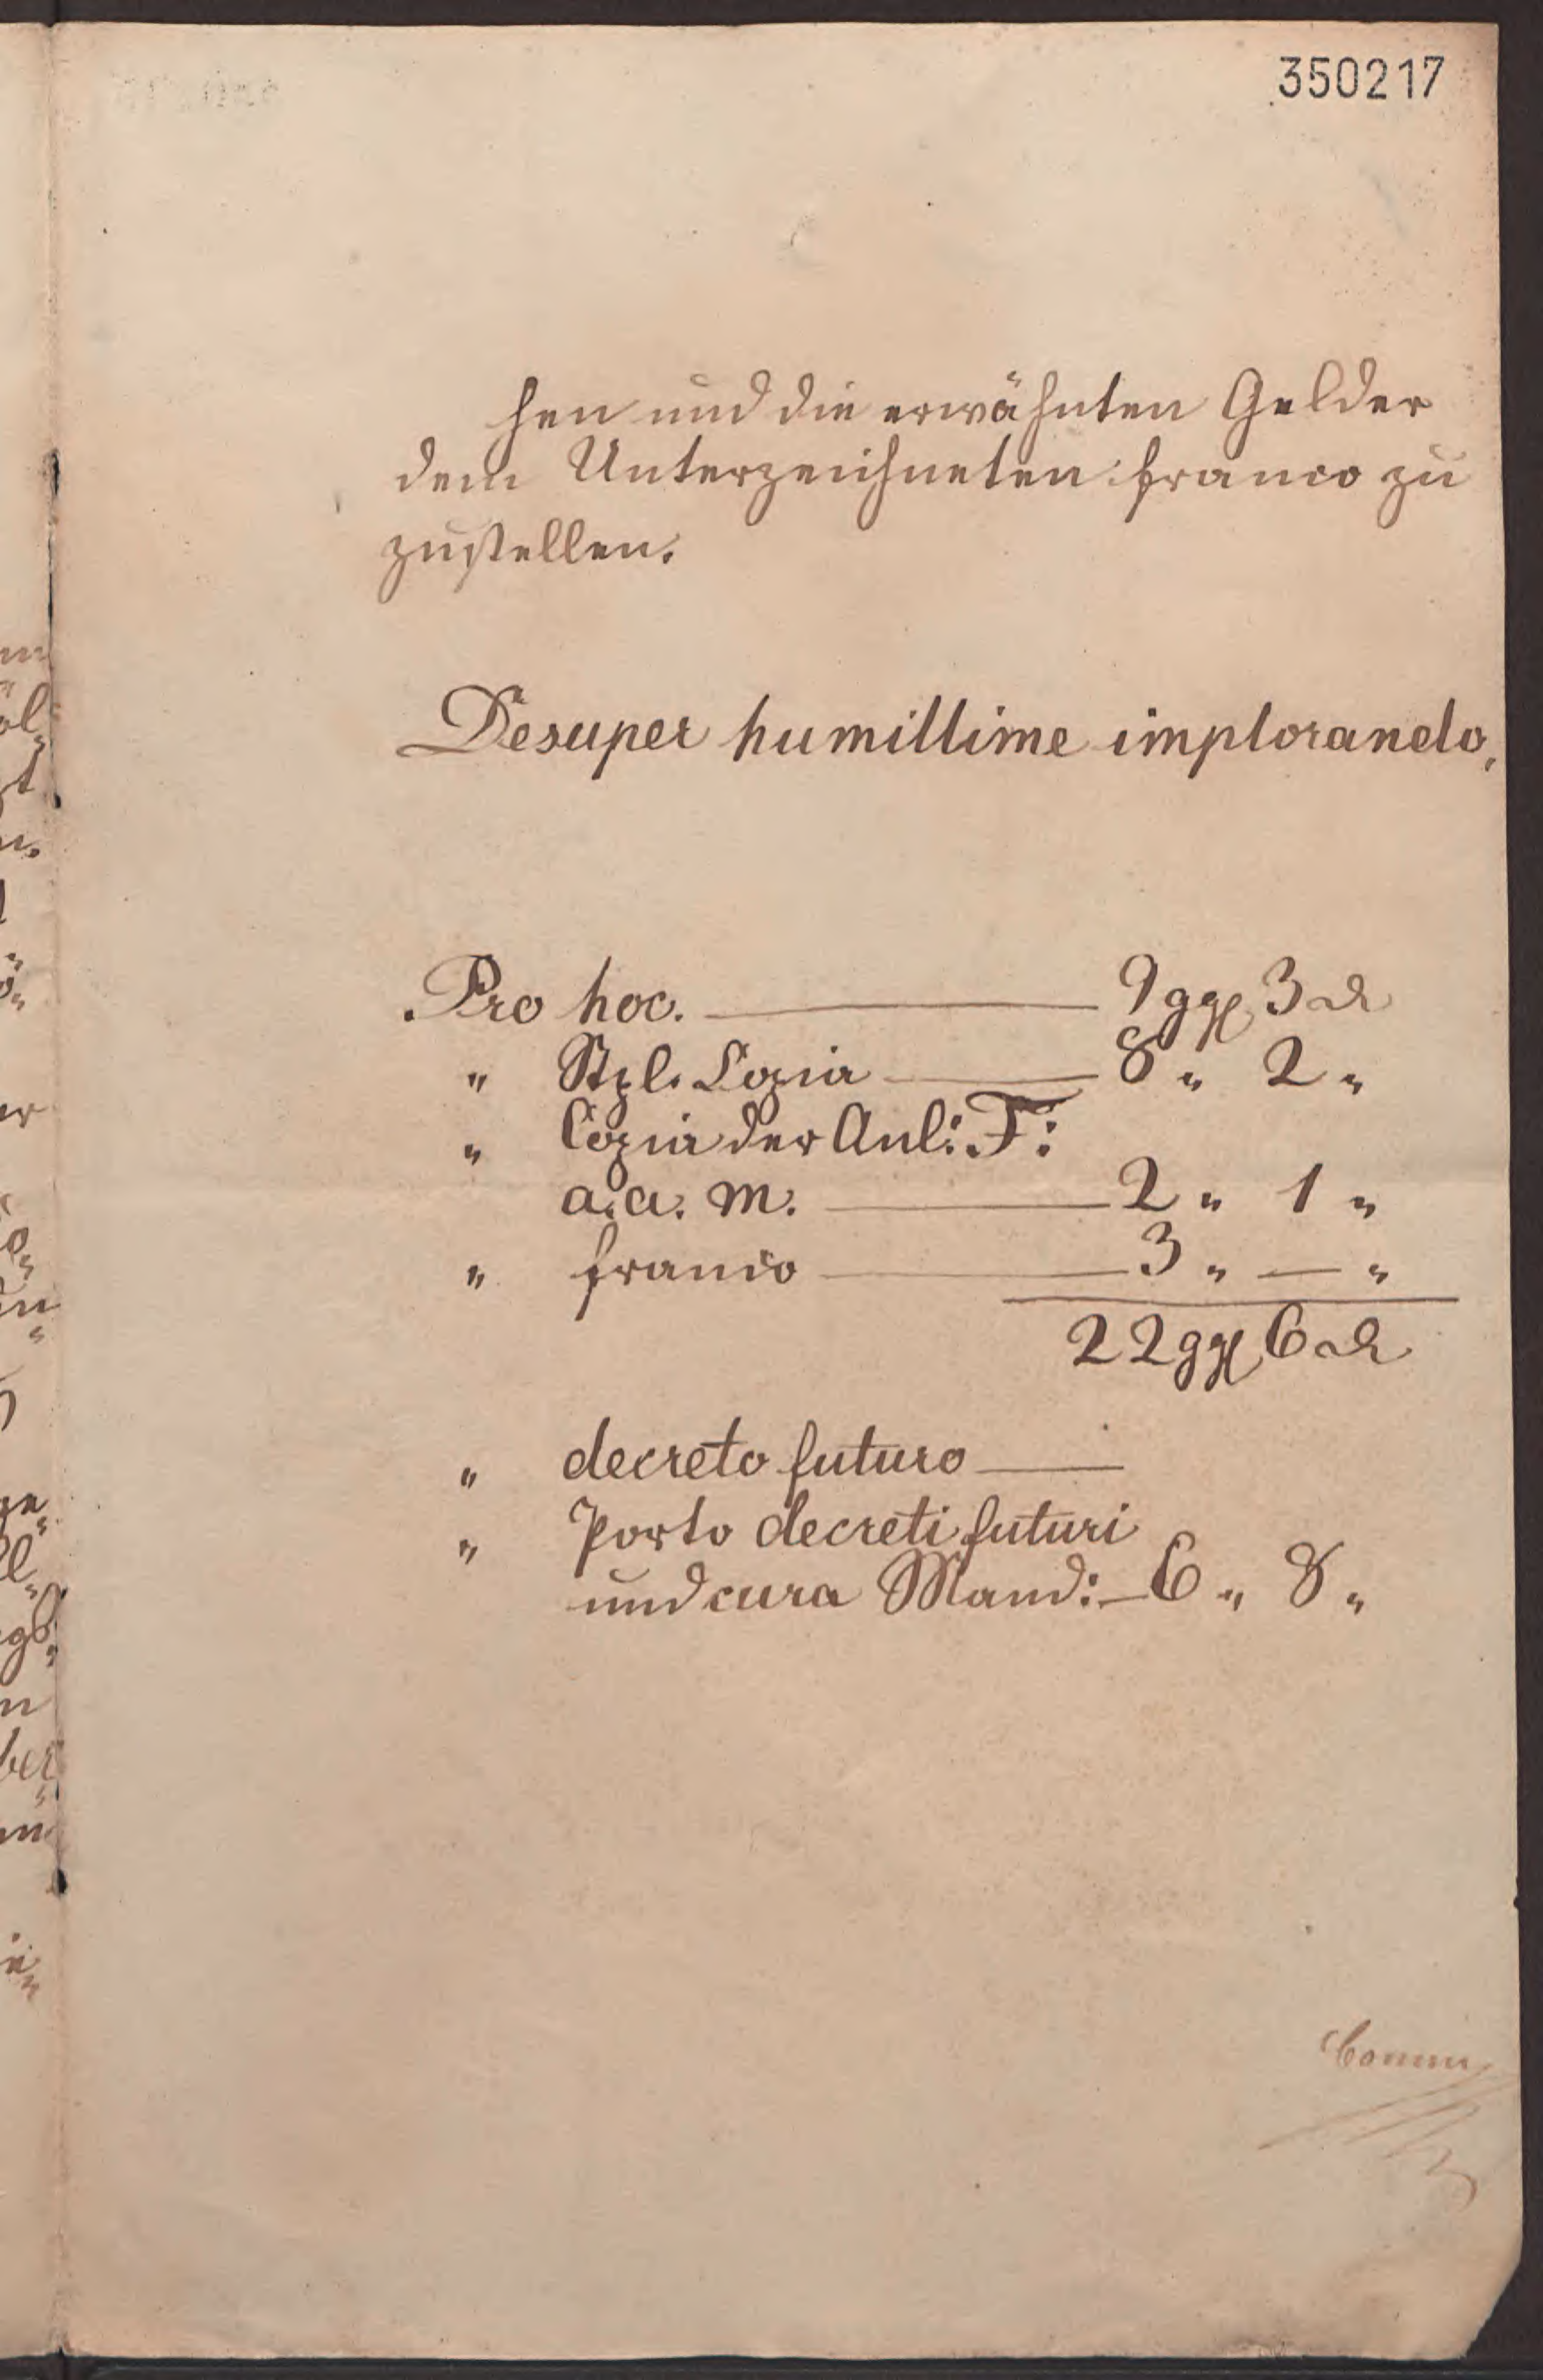 350217
hen und die erwähnten Gelder
dem Unterzeichneten franco zu
zustellen.
Desuper humillime implorando,
Pro hoc. — 9 ggl 3 d
" Stpl. Copia — 8 " 2 "
" Copia der Anl: F:
a. a. m. — 2 " 1 "
" franco — 3 " — "
22 ggl 6 d
" decreto futuro —
" Porto decreti futuri
und cura Mand: — 6 " 8 "
Comm